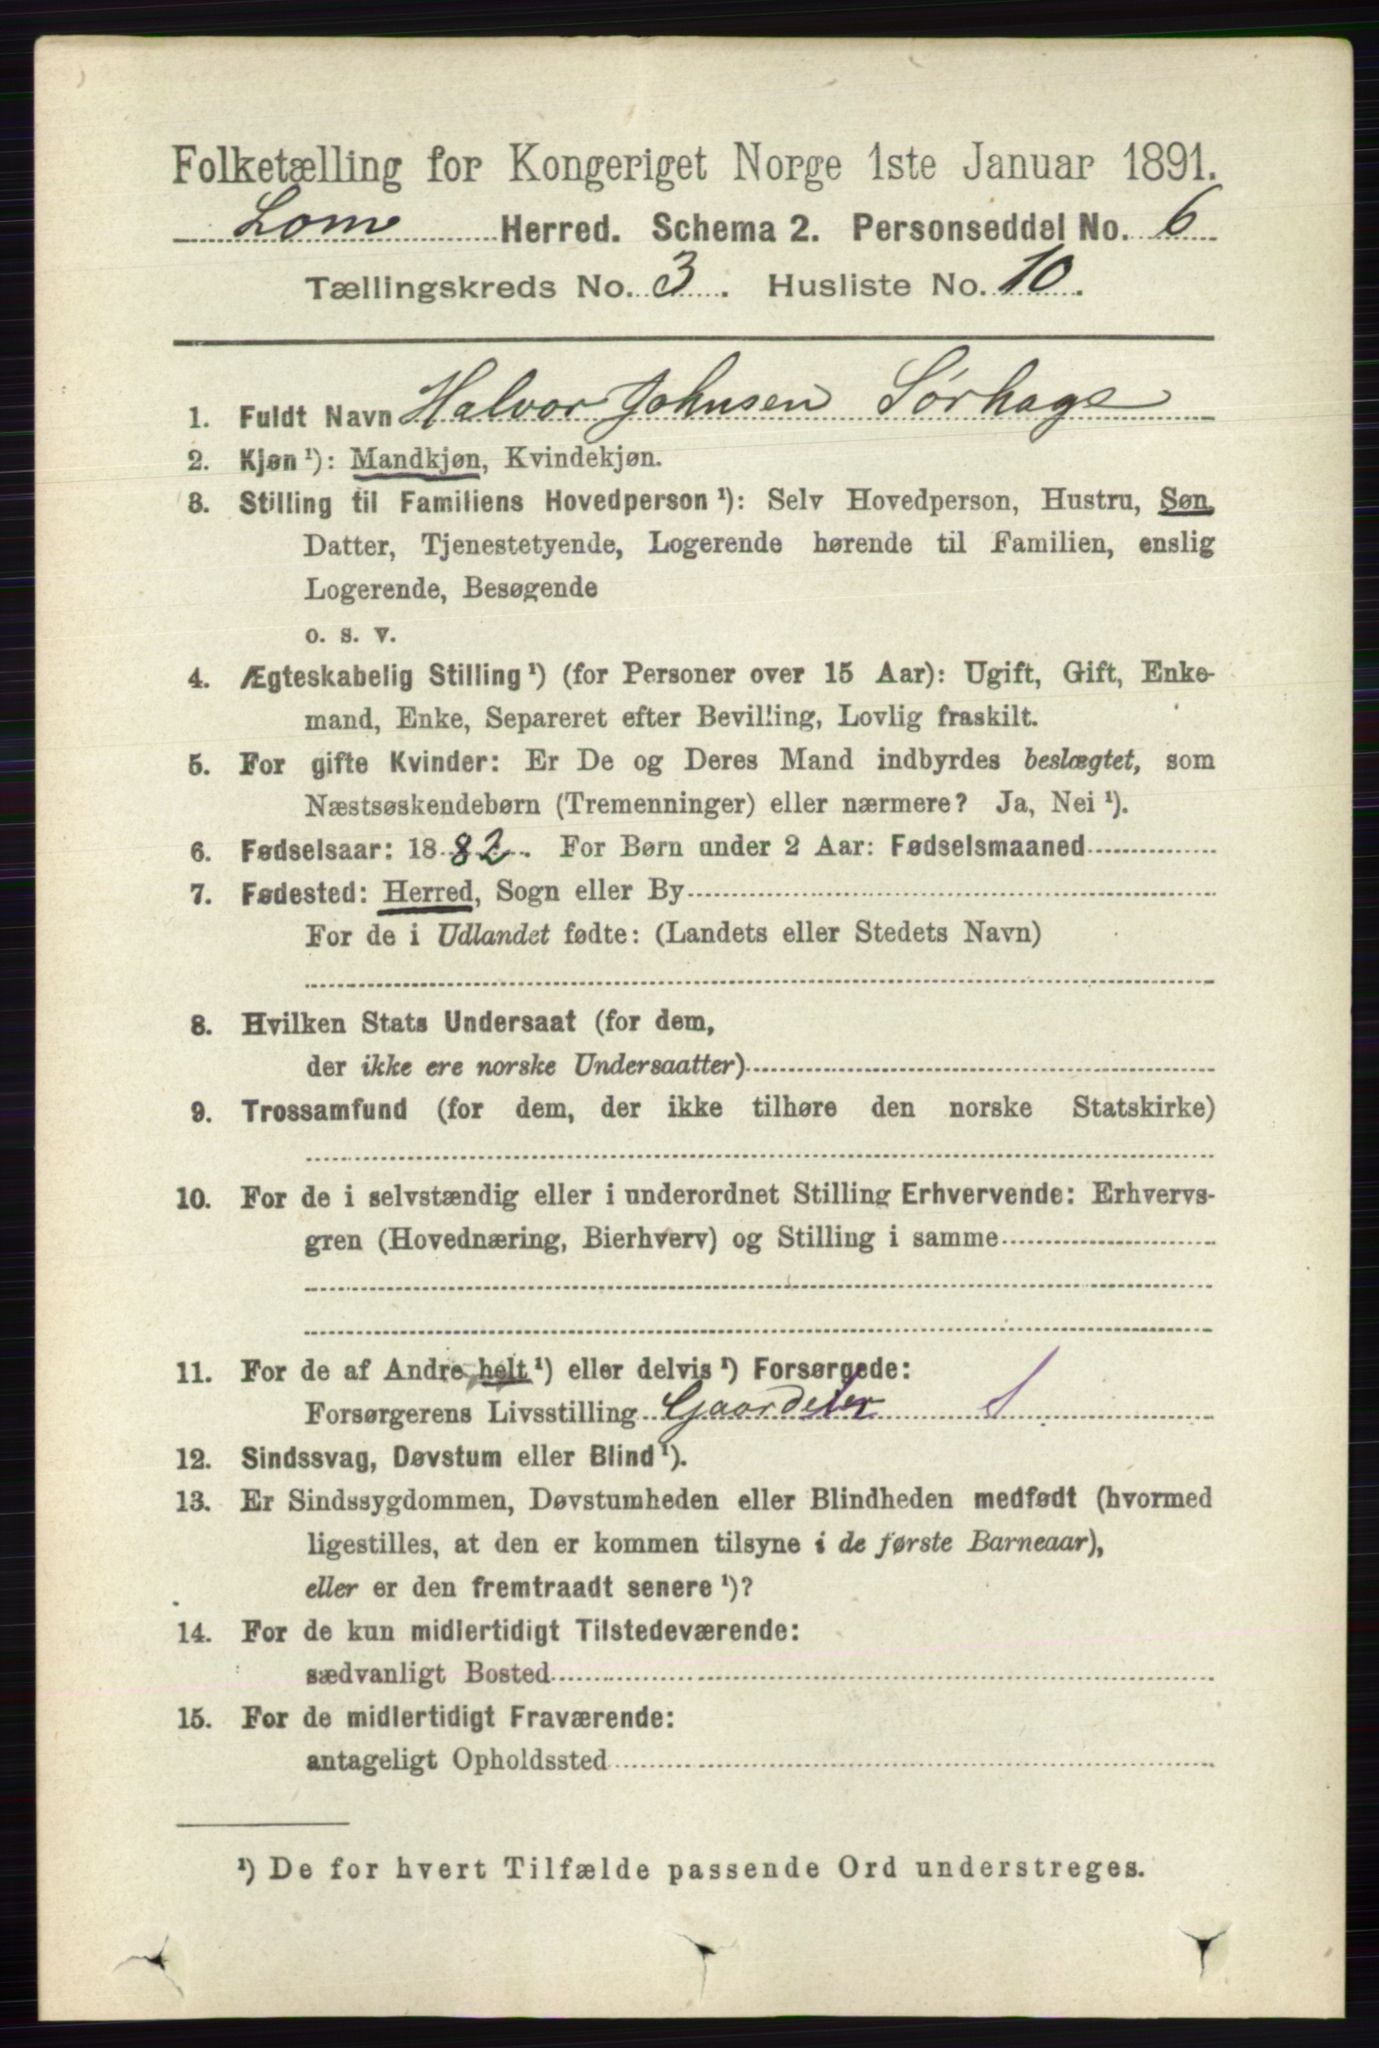 Folketælling for Kongeriget Norge 1ste Januar 1891.
Lom Herred. Schema 2. Personseddel No. 6
Tællingskreds No. 3. Husliste No. 10.
1. Fuldt Navn Halvor Johnsen Sørhage
2. Kjøn ¹): Mandkjøn, Kvindekjøn.
3. Stilling til Familiens Hovedperson ¹): Selv Hovedperson, Hustru, Søn,
Datter, Tjenestetyende, Logerende hørende til Familien, enslig
Logerende, Besøgende
o. s. v.
4. Ægteskabelig Stilling ¹) (for Personer over 15 Aar): Ugift, Gift, Enke-
mand, Enke, Separeret efter Bevilling, Lovlig fraskilt.
5. For gifte Kvinder: Er De og Deres Mand indbyrdes beslægtet, som
Næstsøskendebørn (Tremenninger) eller nærmere? Ja, Nei ¹).
6. Fødselsaar: 1882. For Børn under 2 Aar: Fødselsmaaned
7. Fødested: Herred, Sogn eller By
For de i Udlandet fødte: (Landets eller Stedets Navn)
8. Hvilken Stats Undersaat (for dem,
der ikke ere norske Undersaatter)
9. Trossamfund (for dem, der ikke tilhøre den norske Statskirke)
10. For de i selvstændig eller i underordnet Stilling Erhvervende: Erhvervs-
gren (Hovednæring, Bierhverv) og Stilling i samme
11. For de af Andre helt ¹) eller delvis ¹) Forsørgede:
Forsørgerens Livsstilling
12. Sindssvag, Døvstum eller Blind ¹).
13. Er Sindssygdommen, Døvstumheden eller Blindheden medfødt (hvormed
ligestilles, at den er kommen tilsyne i de første Barneaar),
eller er den fremtraadt senere ¹)?
14. For de kun midlertidigt Tilstedeværende:
sædvanligt Bosted
15. For de midlertidigt Fraværende:
antageligt Opholdssted
¹) De for hvert Tilfælde passende Ord understreges.